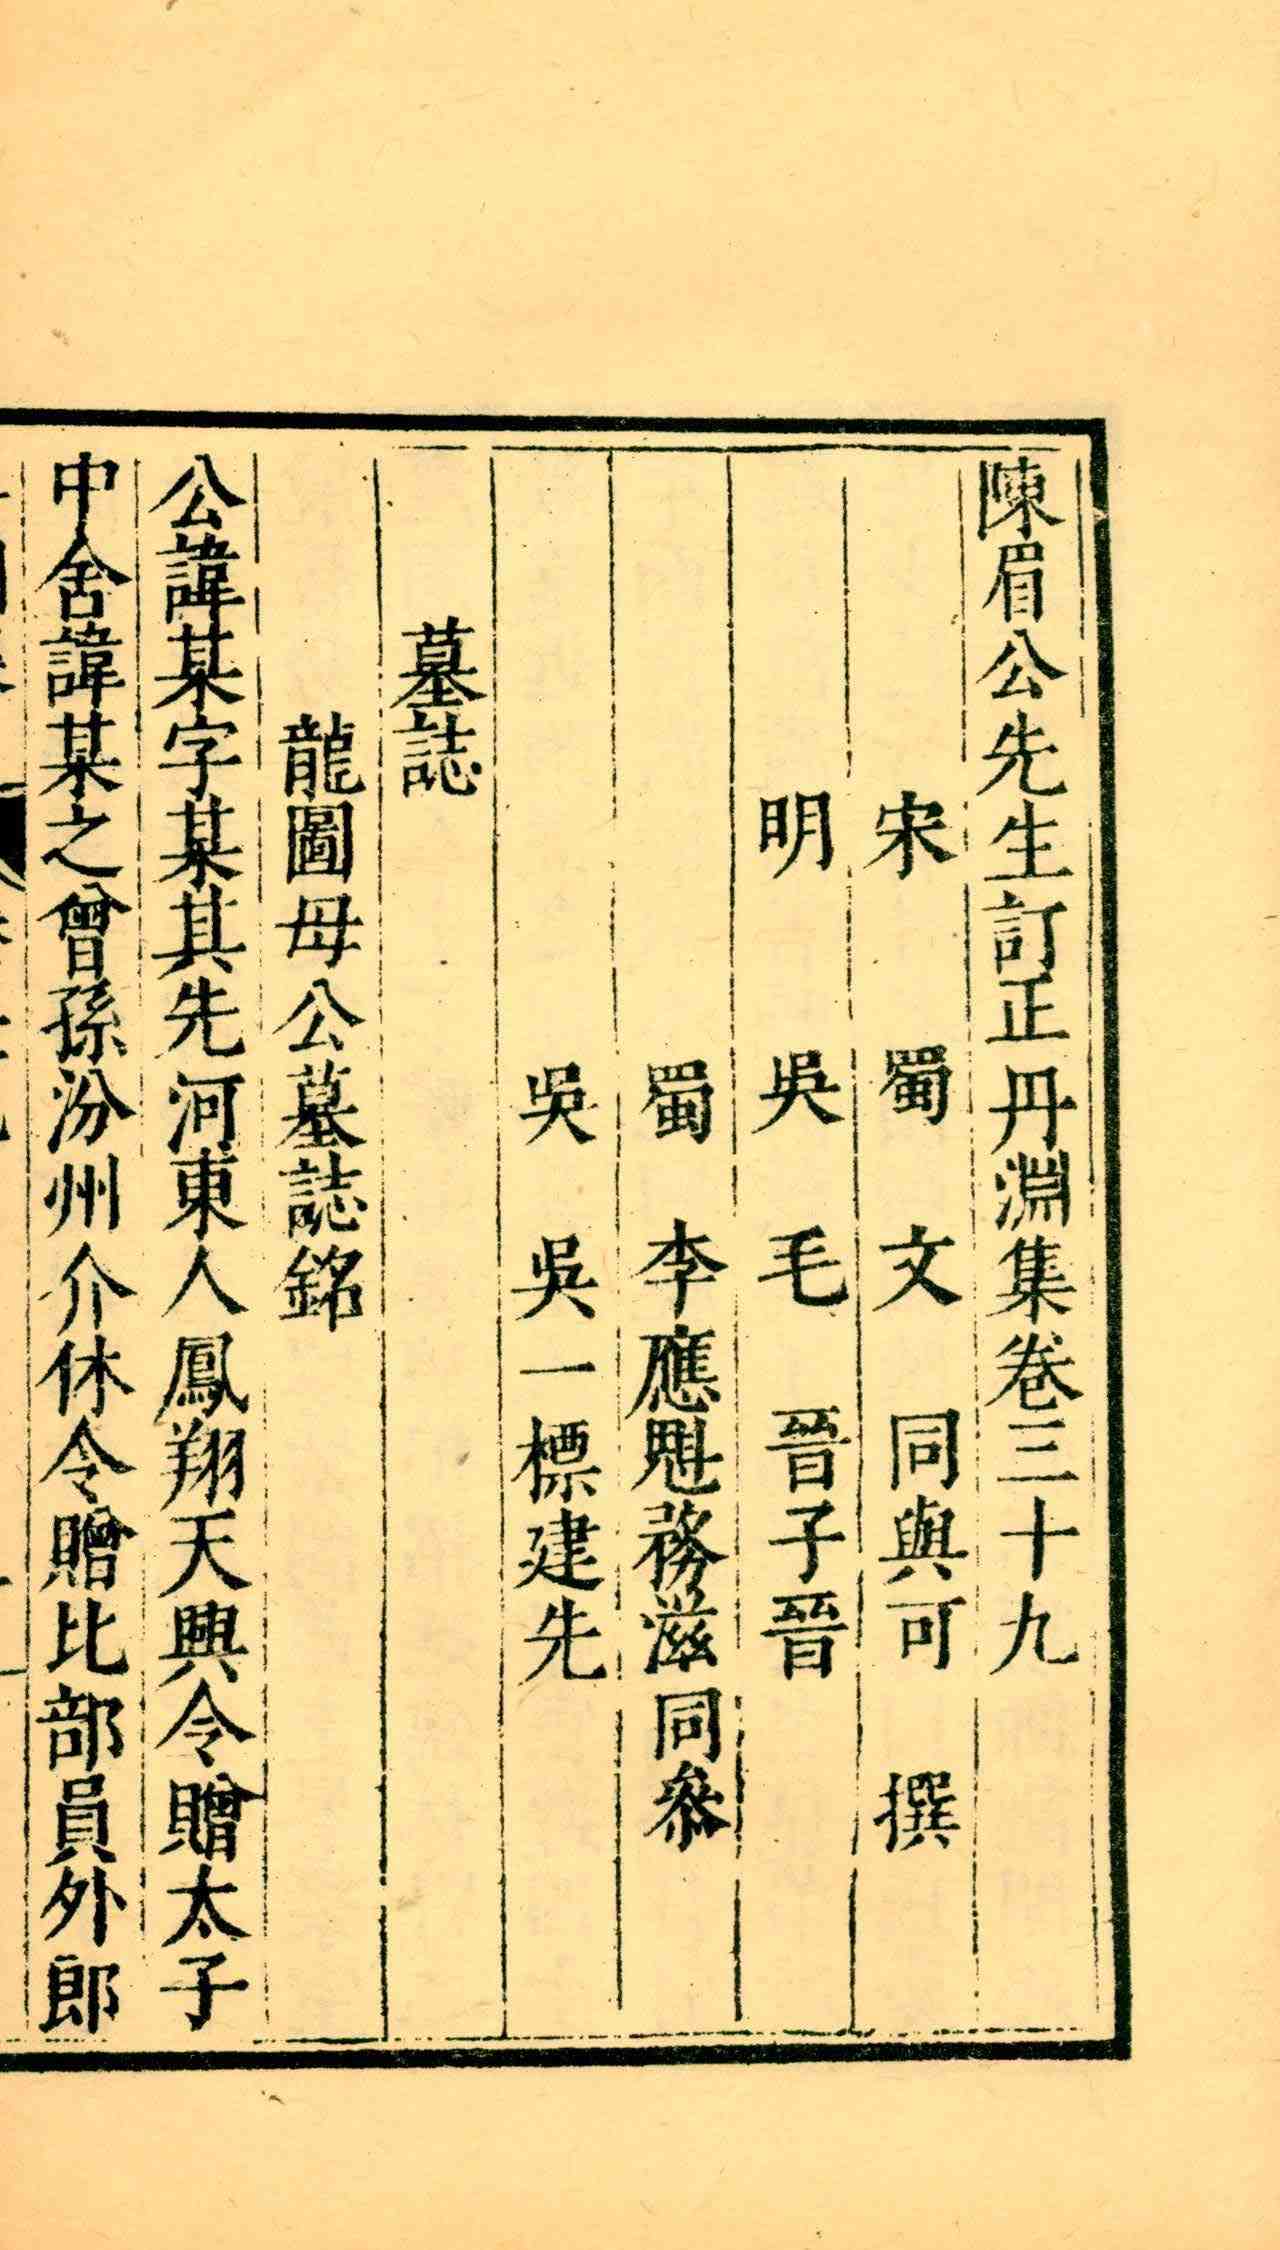 陳眉公先生訂正丹淵集卷三十九
宋 蜀 文 同與可 撰
明 吳 毛 晉子晉
蜀 李應魁務滋同叅
吳 吳一標建先
墓誌
龍圖母公墓誌銘
公諱某字某其先河東人鳳翔天興令贈太子
中舍諱某之曾孫汾州介休令贈比部員外郎